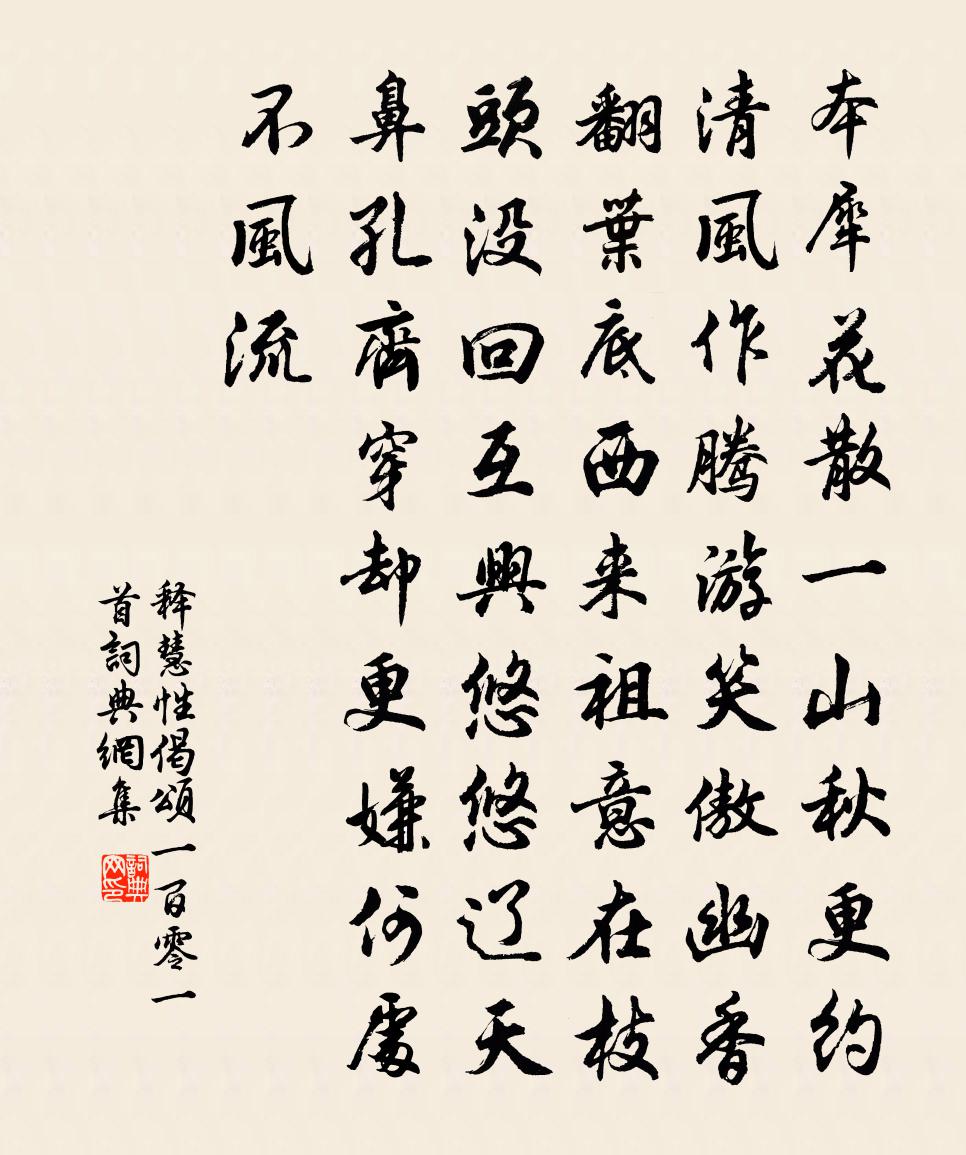 夲犀花散一山秋更约
清風作腾游笑傲幽香
翻葉底西来祖意在枝
頭没回互興悠悠辽天
鼻孔齊穿却更嫌何處
不風流
释慧性偈頌一百零一
首詞典網集
詞典网印